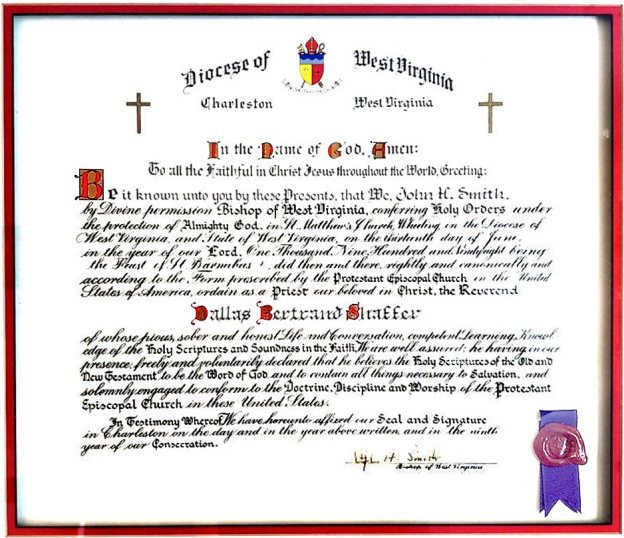 Diocese of West Virginia
Charleston West Virginia
In the Name of God, Amen:
To all the Faithful in Christ Jesus throughout the World, Greeting:
Be it known unto you by these Presents, that We, John H. Smith,
by Divine permission Bishop of West Virginia, conferring Holy Orders under
the protection of Almighty God, in St. Matthew's Church, Wheeling in the Diocese of
West Virginia, and State of West Virginia, on the thirteenth day of June,
in the year of our Lord, One Thousand, Nine Hundred and being
the Feast of St. Barnabus, did then and there, rightly and canonically and
according to the Form prescribed by the Protestant Episcopal Church in the United
States of America, ordain as a Priest our beloved in Christ, the Reverend
Dallas Bertrand Shaffer
of whose pious, sober and honest Life and Conversation, competent Learning, Knowl
edge of the Holy Scriptures and Soundness in the Faith, We are well assured: he having in our
presence, freely and voluntarily declared that he believes the Holy Scriptures of the Old and
New Testament to be the Word of God, and to contain all things necessary to Salvation, and
solemnly engaged to conform to the Doctrine, Discipline and Worship of the Protestant
Episcopal Church in these United States.
In Testimony Whereof We have hereunto affixed our Seal and Signature
in Charleston on the day and in the year above written, and in the ninth
year of our Consecration.
H. Smith
Bishop of West Virginia